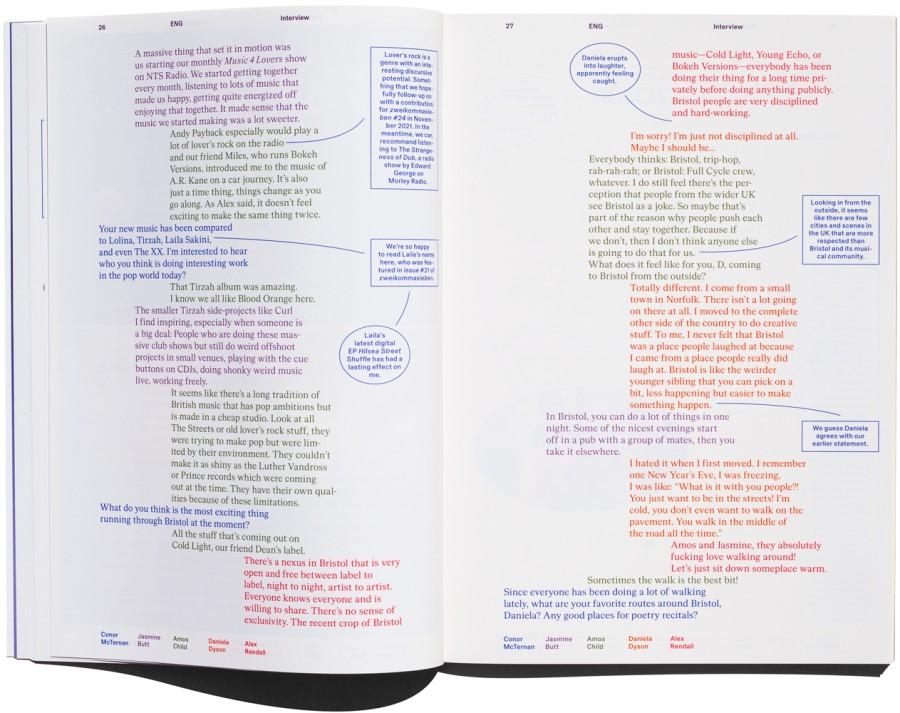 26
ENG
Interview
A massive thing that set it in motion was
us starting our monthly Music 4 Lovers show
on NTS Radio. We started getting together
every month, listening to lots of music that
made us happy, getting quite energized off
enjoying that together. It made sense that the
music we started making was a lot sweeter.
Andy Payback especially would play a
lot of lover's rock on the radio
and our friend Miles, who runs Bokeh
Versions, introduced me to the music of
A.R. Kane on a car journey. It's also
just a time thing, things change as you
go along. As Alex said, it doesn't feel
exciting to make the same thing twice.
Your new music has been compared
to Lolina, Tirzah, Laila Sakini,
and even The XX. I'm interested to hear
who you think is doing interesting work
in the pop world today?
That Tirzah album was amazing.
I know we all like Blood Orange here.
The smaller Tirzah side-projects like Curl
I find inspiring, especially when someone is
a big deal: People who are doing these mas-
sive club shows but still do weird offshoot
projects in small venues, playing with the cue
buttons on CDJs, doing shonky weird music
live, working freely.
It seems like there's a long tradition of
British music that has pop ambitions but
is made in a cheap studio. Look at all
The Streets or old lover's rock stuff, they
were trying to make pop but were lim-
ited by their environment. They couldn't
make it as shiny as the Luther Vandross
or Prince records which were coming
out at the time. They have their own qual-
ities because of these limitations.
What do you think is the most exciting thing
running through Bristol at the moment?
All the stuff that's coming out on
Cold Light, our friend Dean's label.
There's a nexus in Bristol that is very
open and free between label to
label, night to night, artist to artist.
Everyone knows everyone and is
willing to share. There's no sense of
exclusivity. The recent crop of Bristol
Lover's rock is a
genre with an inte-
resting discursive
potential. Somet-
hing that we hope-
fully follow-up on
with a contribution
for zweikommasie-
ben #24 in Novem-
ber 2021. In the
meantime, we can
recommend listen-
ing to The Strange-
ness of Dub, a radio
show by Edward
George on
Morley Radio.
We're so happy
to read Laila's name
here, who was fea-
tured in issue #21 of
zweikommasieben.
Laila's
latest digital
EP Hilsea Street
Shuffle has had a
lasting effect on
me.
Conor
McTernan
Jasmine
Butt
Amos
Child
Daniela
Dyson
Alex
Rendall
27
ENG
Interview
Daniela erupts
into laughter,
apparently feeling
caught.
music—Cold Light, Young Echo, or
Bokeh Versions—everybody has been
doing their thing for a long time pri-
vately before doing anything publicly.
Bristol people are very disciplined
and hard-working.
I'm sorry! I'm just not disciplined at all.
Maybe I should be...
Everybody thinks: Bristol, trip-hop,
rah-rah-rah; or Bristol: Full Cycle crew,
whatever. I do still feel there's the per-
ception that people from the wider UK
see Bristol as a joke. So maybe that's
part of the reason why people push each
other and stay together. Because if
we don't, then I don't think anyone else
is going to do that for us.
What does it feel like for you, D, coming
to Bristol from the outside?
Totally different. I come from a small
town in Norfolk. There isn't a lot going
on there at all. I moved to the complete
other side of the country to do creative
stuff. To me, I never felt that Bristol
was a place people laughed at because
I came from a place people really did
laugh at. Bristol is like the weirder
younger sibling that you can pick on a
bit, less happening but easier to make
something happen.
In Bristol, you can do a lot of things in one
night. Some of the nicest evenings start
off in a pub with a group of mates, then you
take it elsewhere.
I hated it when I first moved. I remember
one New Year's Eve, I was freezing,
I was like: “What is it with you people?!
You just want to be in the streets! I'm
cold, you don't even want to walk on the
pavement. You walk in the middle of
the road all the time.”
Amos and Jasmine, they absolutely
fucking love walking around!
Let's just sit down someplace warm.
Sometimes the walk is the best bit!
Since everyone has been doing a lot of walking
lately, what are your favorite routes around Bristol,
Daniela? Any good places for poetry recitals?
Looking in from the
outside, it seems
like there are few
cities and scenes in
the UK that are more
respected than
Bristol and its musi-
cal community.
We guess Daniela
agrees with our
earlier statement.
Conor
McTernan
Jasmine
Butt
Amos
Child
Daniela
Dyson
Alex
Rendall